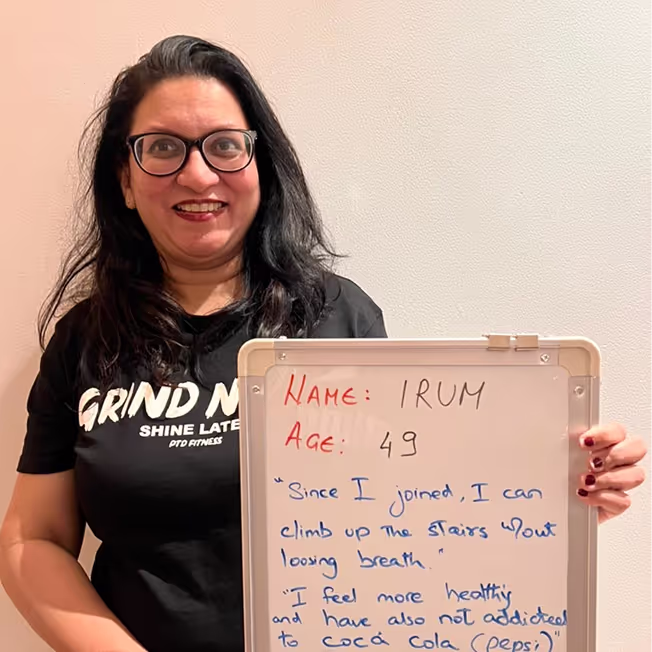 GRIND N
SHINE LATE
PTD FITNESS
NAME: IRUM
AGE: 49
"Since I joined, I can
climb up the stairs w/out
loosing breath."
"I feel more healthy
and have also not addicted
to coca cola (pepsi)"